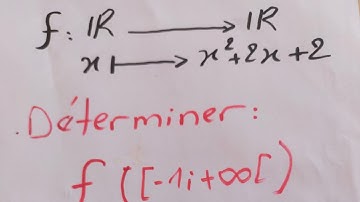 f: IR ⟶ IR
x ⟼ x²+2x+2
.Déterminer:
f ([-1;+∞[)